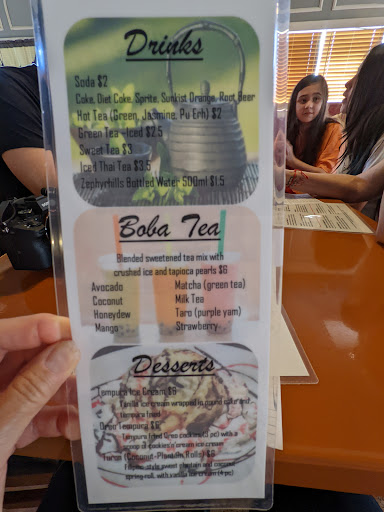 Drinks
Soda $2
Coke, Diet Coke, Sprite, Sunkist Orange, Root Beer
Hot Tea (Green, Jasmine, Pu Erh) $2
Green Tea - Iced $2.5
Sweet Tea $3
Iced Thai Tea $3.5
Zephyrhills Bottled Water 500ml $1.5
Boba Tea
Blended sweetened tea mix with
crushed ice and tapioca pearls $6
Avocado
Coconut
Honeydew
Mango
Matcha (green tea)
Milk Tea
Taro (purple yam)
Strawberry
Desserts
Tempura Ice Cream $6
Vanilla ice cream wrapped in pound cake and
tempura fried
Oreo Tempura $6
Tempura fried Oreo cookies (3 pc) with a
scoop of cookies n cream ice cream
Turon (Coconut-Plantain Rolls) $6
Filipino-style sweet plantain and coconut
spring roll, with vanilla ice cream (4 pc)